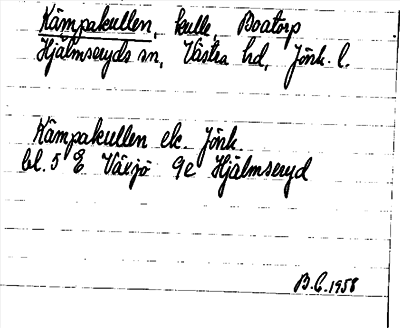 Kämpakullen, kulle, Boatorp
Hjälmseryds sn, Västra hd, Jönk. l.
Kämpakullen ek. Jönk.
bl. 5 E Växjö 9e Hjälmseryd
B.C. 1958